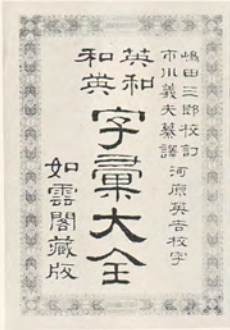 嶋田三郎校訂
市川義夫纂譯 河原英吉校字
英和
和英
字彙大全
如雲閣藏版